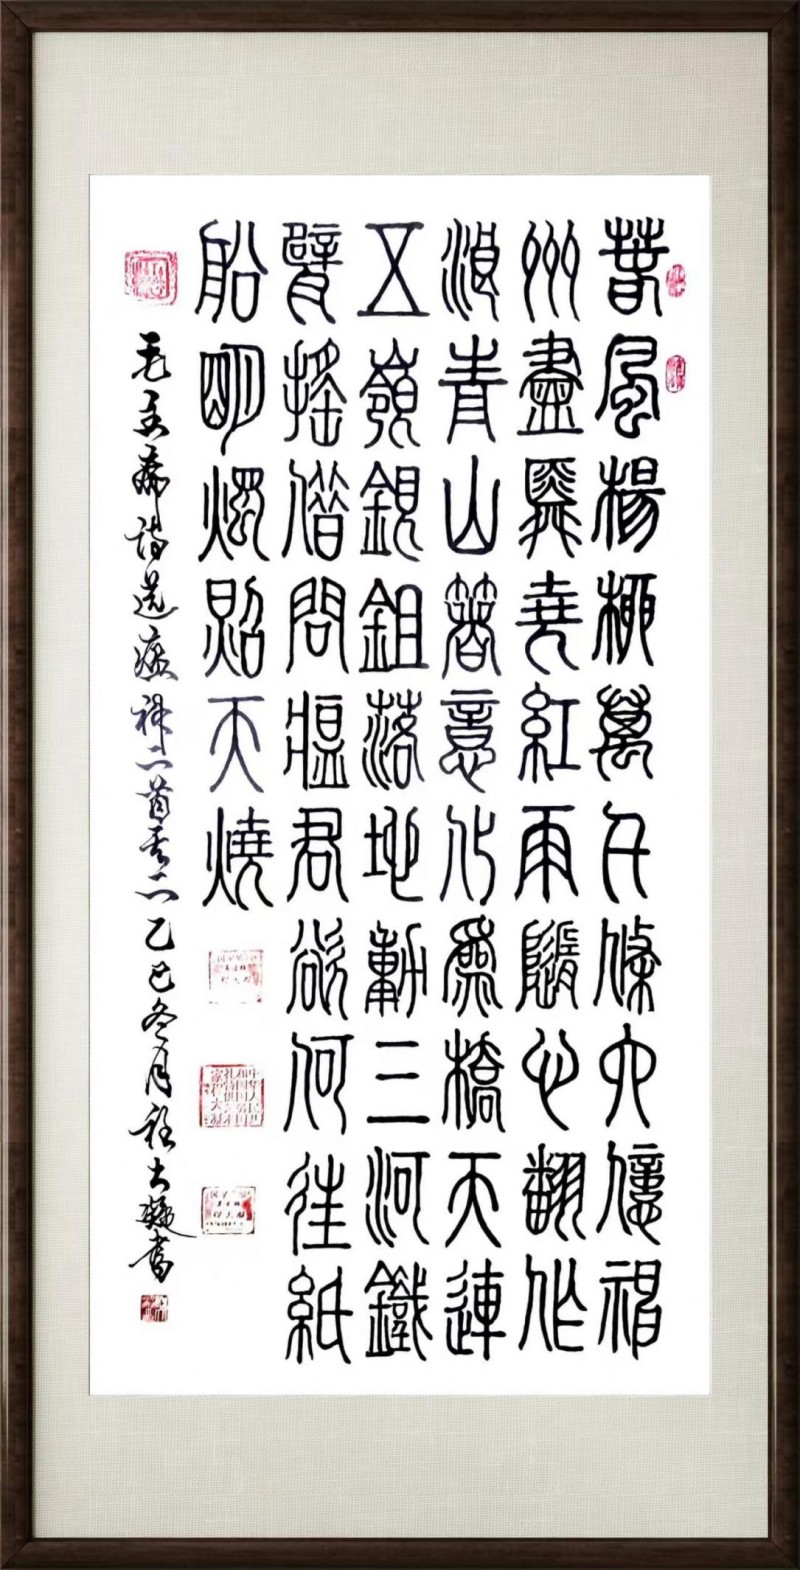 春風楊柳萬千條六億神
州盡舜堯紅雨隨心翻作
浪青山箸意化為橋天連
五嶺銀鉏落地動三河鐵
臂搖借問瘟君欲何往紙
船明燭照天燒
毛主席诗送瘟神二首其二乙巳冬月程大凝書